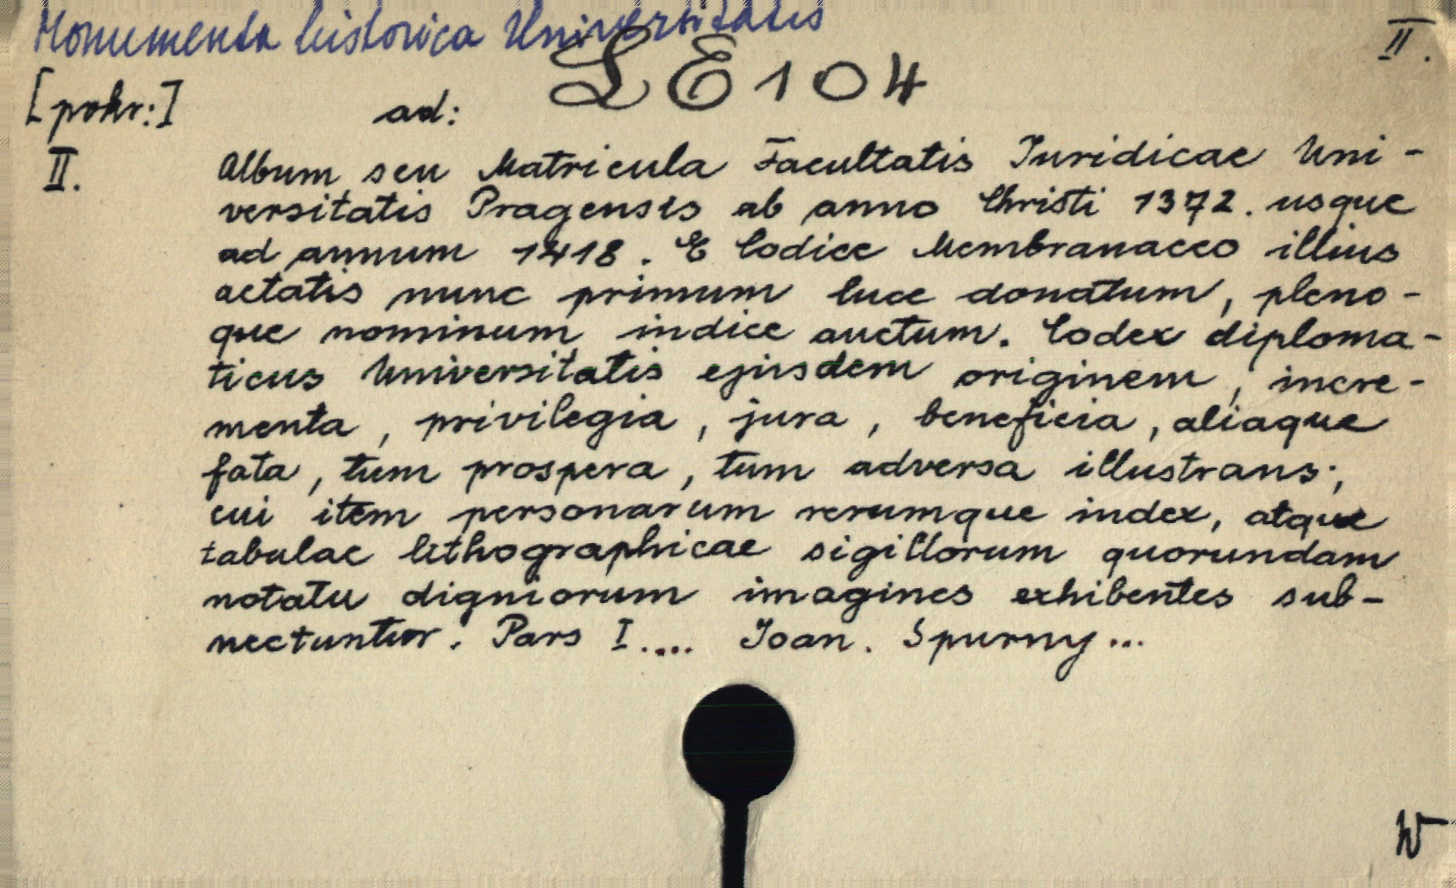 Monumenta historica Universitatis
II.
[pokr:] ad: LE 104
II. Album seu Matricula Facultatis Juridicae Uni-
versitatis Pragensis ab anno Christi 1372. usque
ad annum 1418. E Codice Membranaceo illius
aetatis nunc primum luce donatum, pleno-
que nominum indice auctum. Codex diploma-
ticus Universitatis ejusdem originem, incre-
menta, privilegia, jura, beneficia, aliaque
fata, tum prospera, tum adversa illustrans;
cui item personarum rerumque index, atque
tabulae lithographicae sigillorum quorundam
notatu digniorum imagines exhibentes sub-
nectuntur. Pars I.... Joan. Spurny...
W